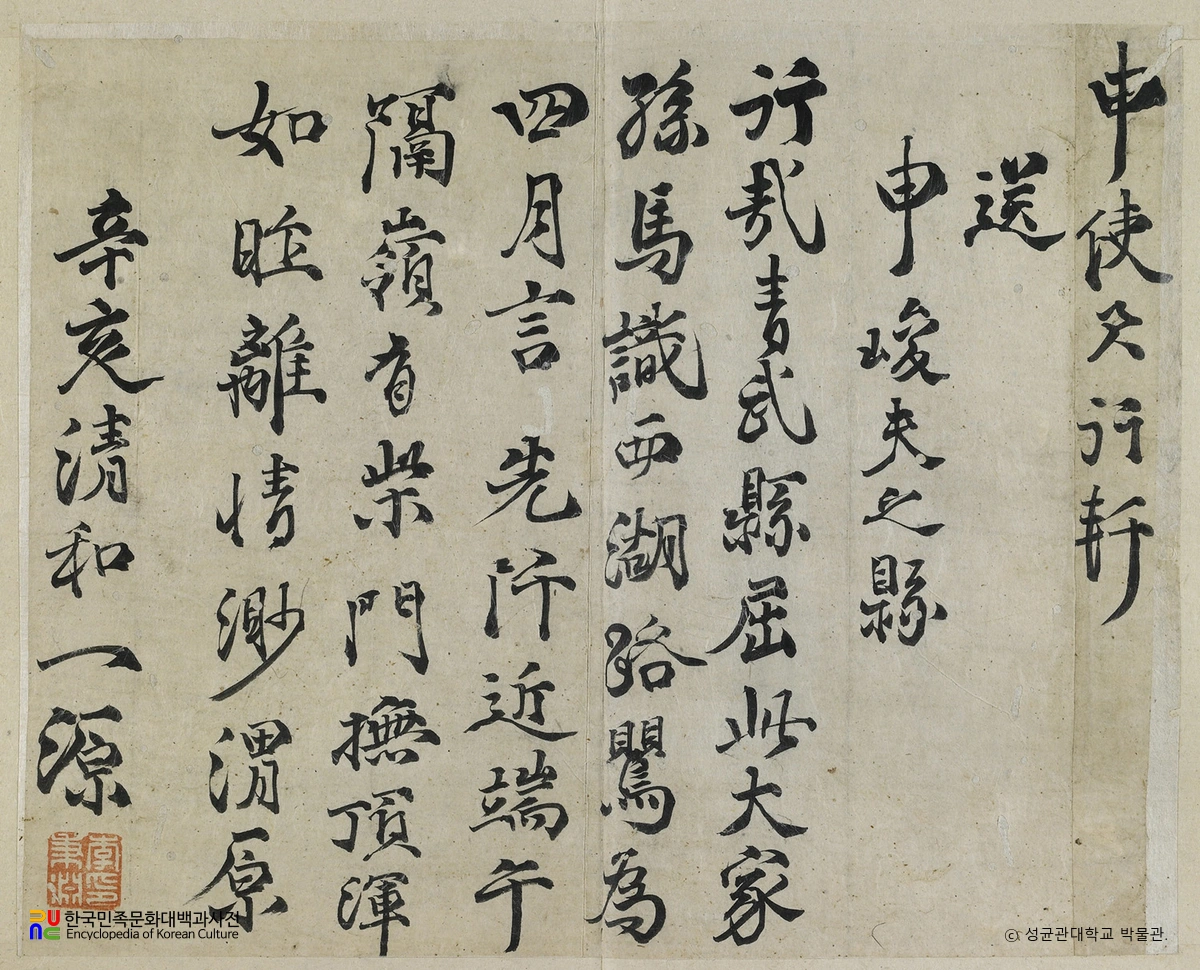 申使君行軒
送
申峻夫之縣
行哉青武縣屈此大家
孫馬識西湖路鸎為
四月言先阡近端午
隔嶺有柴門撫頂渾
如昨離情渺渭原
辛亥清和一源
李印秉淵
한국민족문화대백과사전
Encyclopedia of Korean Culture
ⓒ 성균관대학교 박물관.